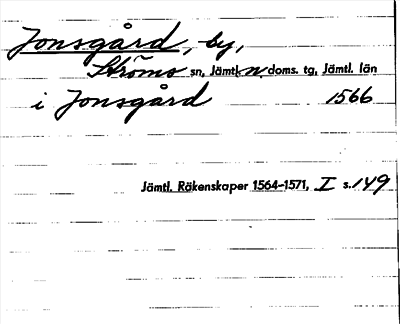 Jonsgård, by,
Ströms sn, Jämtl. n doms. tg, Jämtl. län
i Jonsgård 1566
Jämtl. Räkenskaper 1564-1571, I s. 149